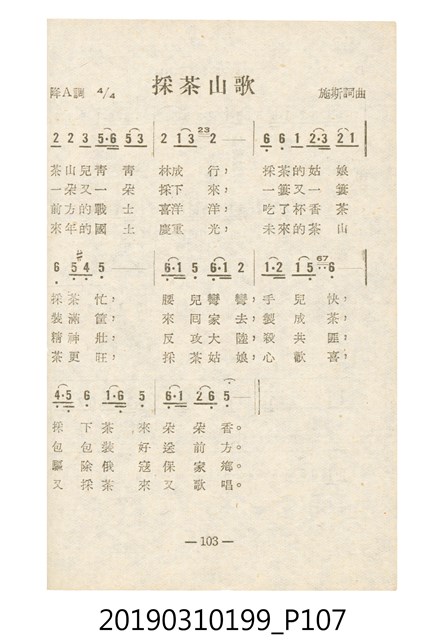 採茶山歌
降A調 4/4 施斯詞曲
2 2 3 5·6 5 3 | 2 1 3 23 2 — | 6 6 1 2·3 2 1 |
茶山兒青青 林成行， 採茶的姑娘
一朵又一朵 採下來， 一簍又一簍
前方的戰士 喜洋洋， 吃了杯香茶
來年的國土 慶重光， 未來的茶山
6 5 #4 5 — | 6·1 5 6·1 2 | 1·2 1 5 67 6 |
採茶忙， 腰兒彎彎，手兒快，
裝滿筐， 來回家去，製成茶，
精神壯， 反攻大陸，殺共匪，
茶更旺， 採茶姑娘，心歡喜，
4·5 6 1·6 5 | 6·1 2 6 5 — |
採下茶來朵朵香。
包包裝好送前方。
驅除俄寇保家鄉。
又採茶來又歌唱。
— 103 —
20190310199_P107